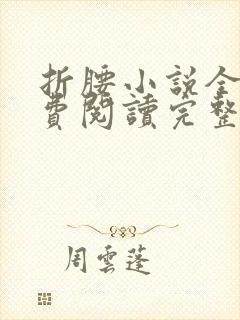 折腰小説全
費閱讀完整
周雲蓬